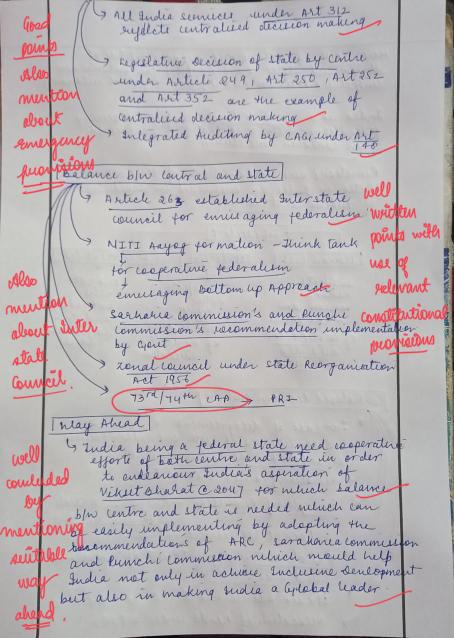 → All India services under Art 312
reflects centralised decision making
→ Legislative Decision of state by Centre
under Article 249, Art 250, Art 252
and Art 352 are the example of
centralised decision making
→ Integrated Auditing by CAG under Art
148
Good
points
Also
mention
about
emergency
provisions
balance b/w Central and State
→ Article 263 established Interstate
council for envisaging federalism
→ NITI Aayog formation - Think Tank
↓
for cooperative federalism
↓
envisaging bottom up Approach
→ Sarkaria Commission's and Punchi
Commission's recommendation implementation
by Govt
→ zonal council under State Reorganisation
Act 1956
→ 73rd/74th CAA → PRI
well
written
points with
use of
relevant
constitutional
provisions
Also
mention
about Inter
state
Council.
Way Ahead
↳ India being a federal state need cooperative
efforts of both centre and state in order
to endeavour India's aspiration of
Viksit Bharat @ 2047 for which balance
b/w centre and state is needed which can
be easily implementing by adopting the
recommendations of ARC, Sarakaria commission
and Punchi Commission which would help
India not only in achieve Inclusive Development
but also in making India a Global leader.
well
concluded
by
mentioning
suitable
way
ahead.